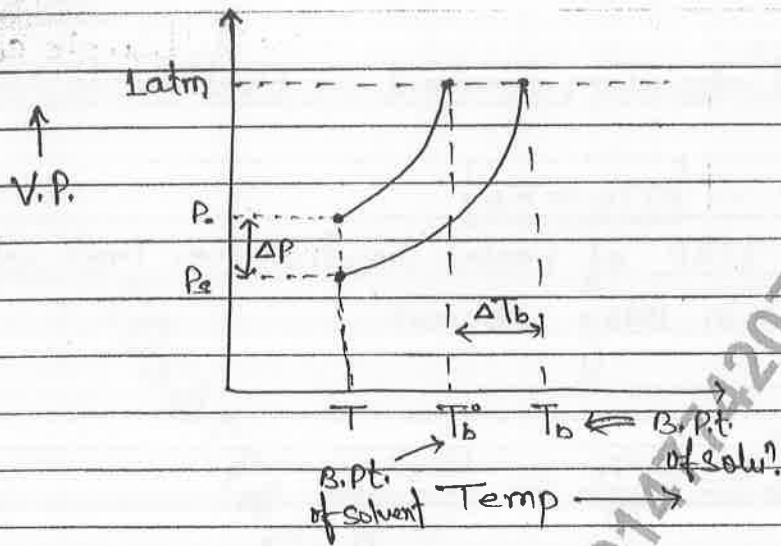 1 atm
↑
V.P.
P₀
ΔP
Ps
ΔTb
T
Tb°
Tb ⇐ B.Pt. of solun.
B.Pt. of solvent
Temp →